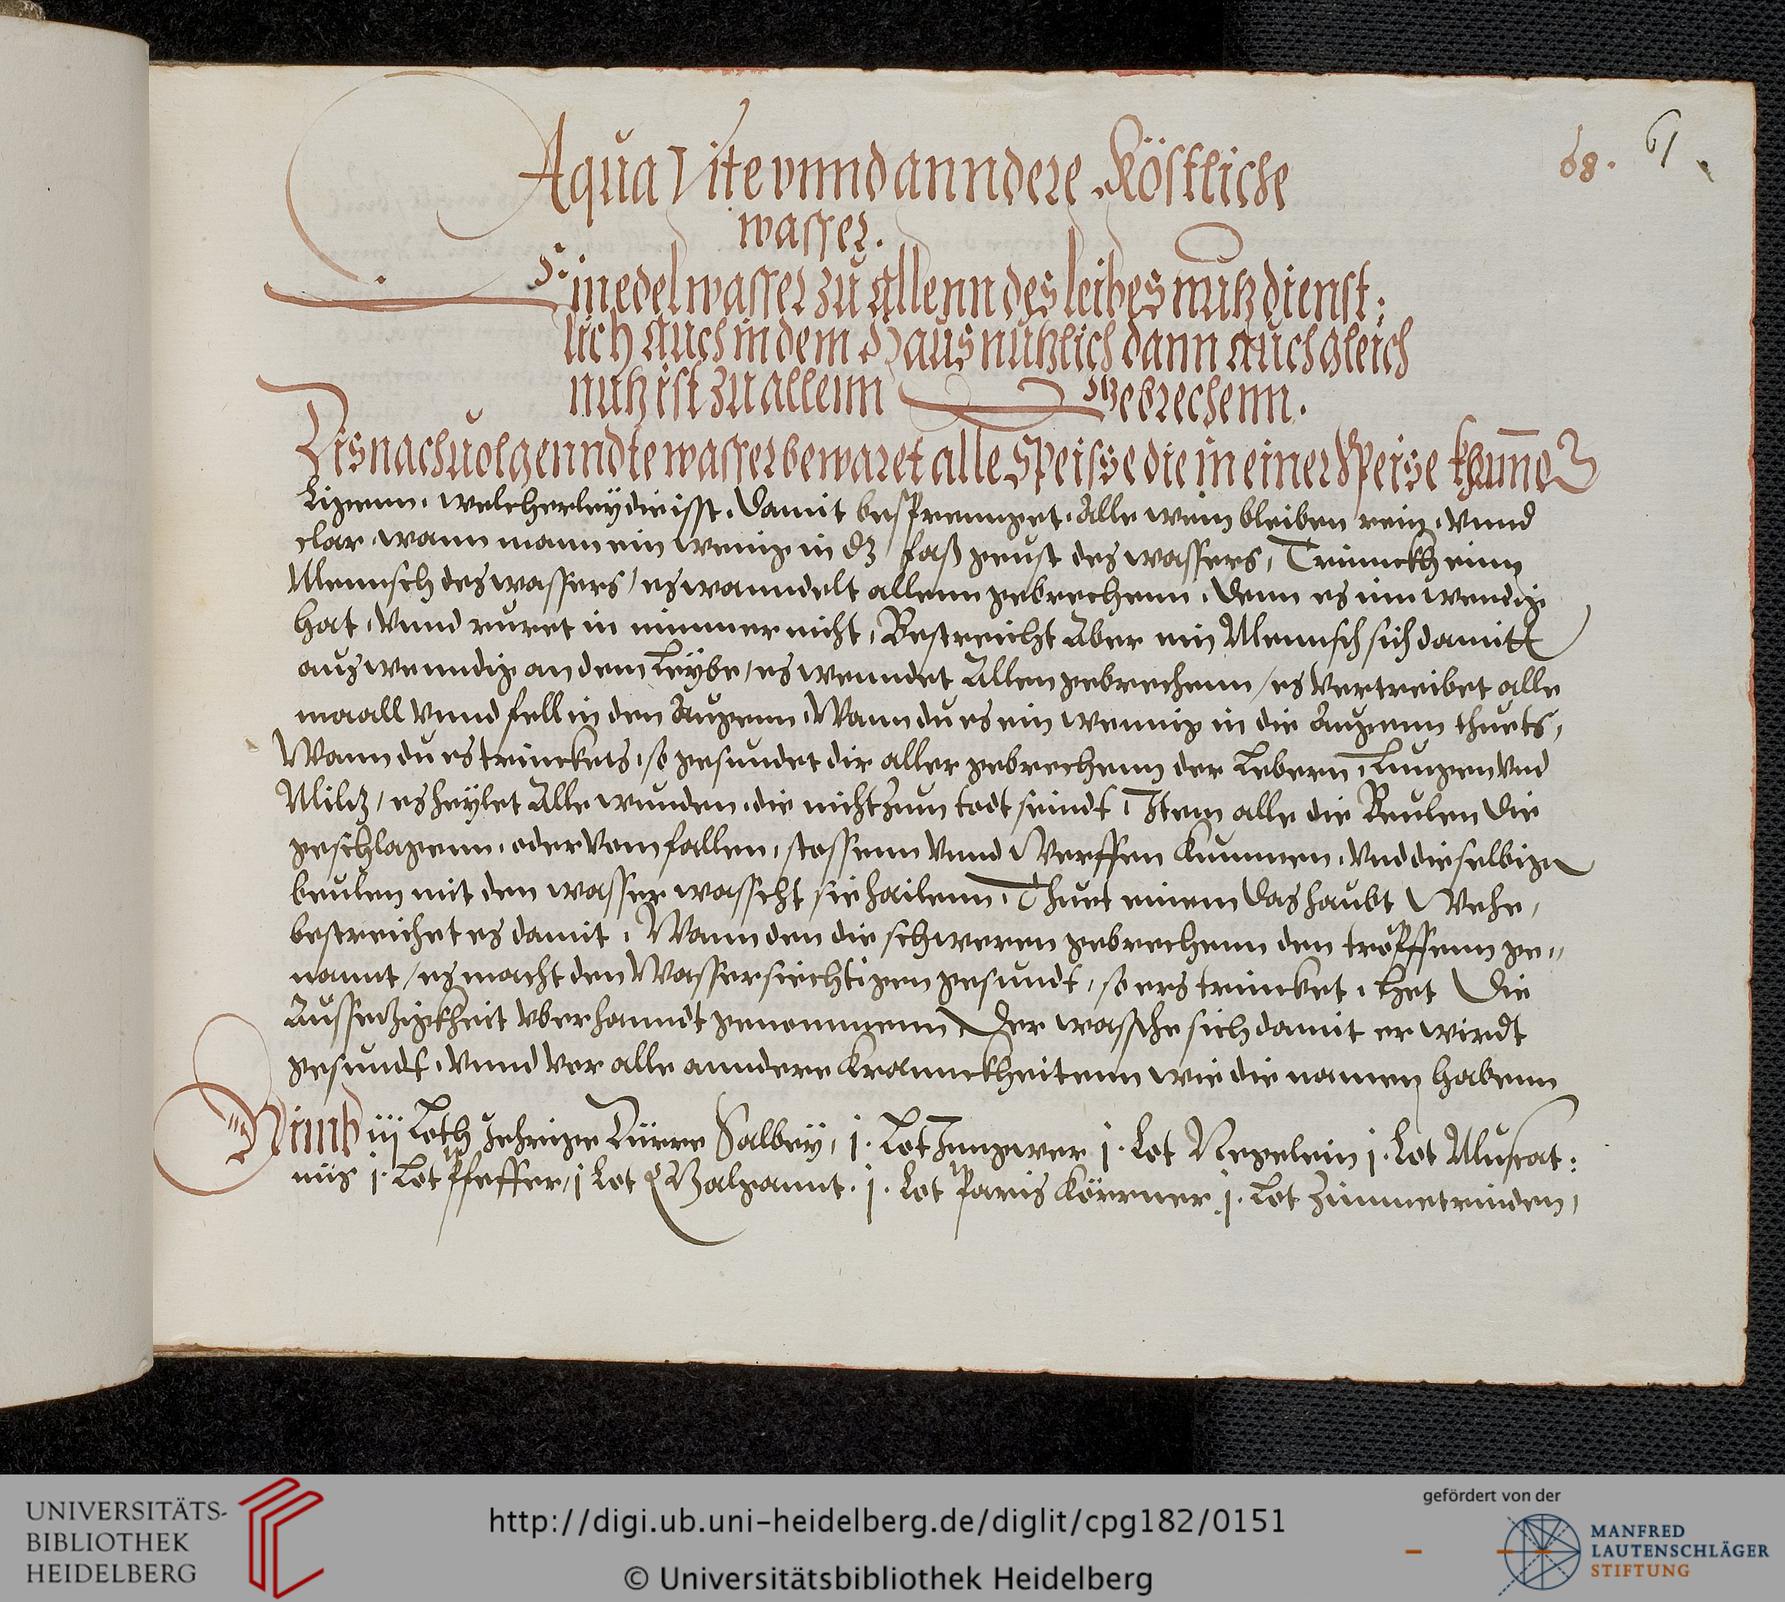 68. 61
Aqua Vite vnnd anndere Köstliche
wasser.
Ein edel wasser zu allenn des leibes nutz dienst:
lich auch in dem Haus nutzlich dann auch gleich
nutz ist zu allenn Gebrechenn.
Dis nachuolgenndte wasser bewaret alle Speisse die in einer Speise khum̄en
ligenn, welcherley die isst, damit besprennget, Alle wein bleiben rein, vnnd
clar, wann mann ein wenig in dz faß geust des wassers, Trinnckh einn
Mennsch des wassers / es wanndelt allenn gebrechenn, denn es inwendig
hat, vnnd ruret in nimmer nicht, Bestreicht Aber ein Mennsch sich damitt
auswenndig an dem Leybe / es wenndet Allen gebrechenn / es vertreibet alle
maall vnnd fell in den Augenn, Wann du es ein wennig in die Augenn thuets,
Wann du es trinckets, so gesundet dir aller gebrechenn der Lebern, Lungen vnd
Miltz / es heylet Alle wunden, die nicht zum todt seindt, Item alle die Beulen die
geschlagenn, oder vom fallen, stossenn vnnd Werffen kummen, vnd dieselbigen
beulen mit den wasser wascht sie hailenn, Thuet einem das haubt Wehe,
bestreichet es damit, Wann den die schweren gebrechenn den tropffenn ge=
nannt / es macht den Wassersüchtigen gesundt, so ers trincket, Het Die
Aussetzigkheit vberhanndt genommenn, Der wasche sich damit er wirdt
gesundt, vnnd vor alle anndere Kranncktheitenn wie die namen habenn
Nimb iij Loth Jehrige Dürre Salbey, j. Lot Jungwer j. Lot Negelein j. Lot Muscat:
nüs j. Lot Pfeffer, j Lot Galgannt. j. Lot Paris Körrner j. Lot Zimmetrinden,
UNIVERSITÄTS-
BIBLIOTHEK
HEIDELBERG
http://digi.ub.uni-heidelberg.de/diglit/cpg182/0151
© Universitätsbibliothek Heidelberg
gefördert von der
MANFRED
LAUTENSCHLÄGER
STIFTUNG